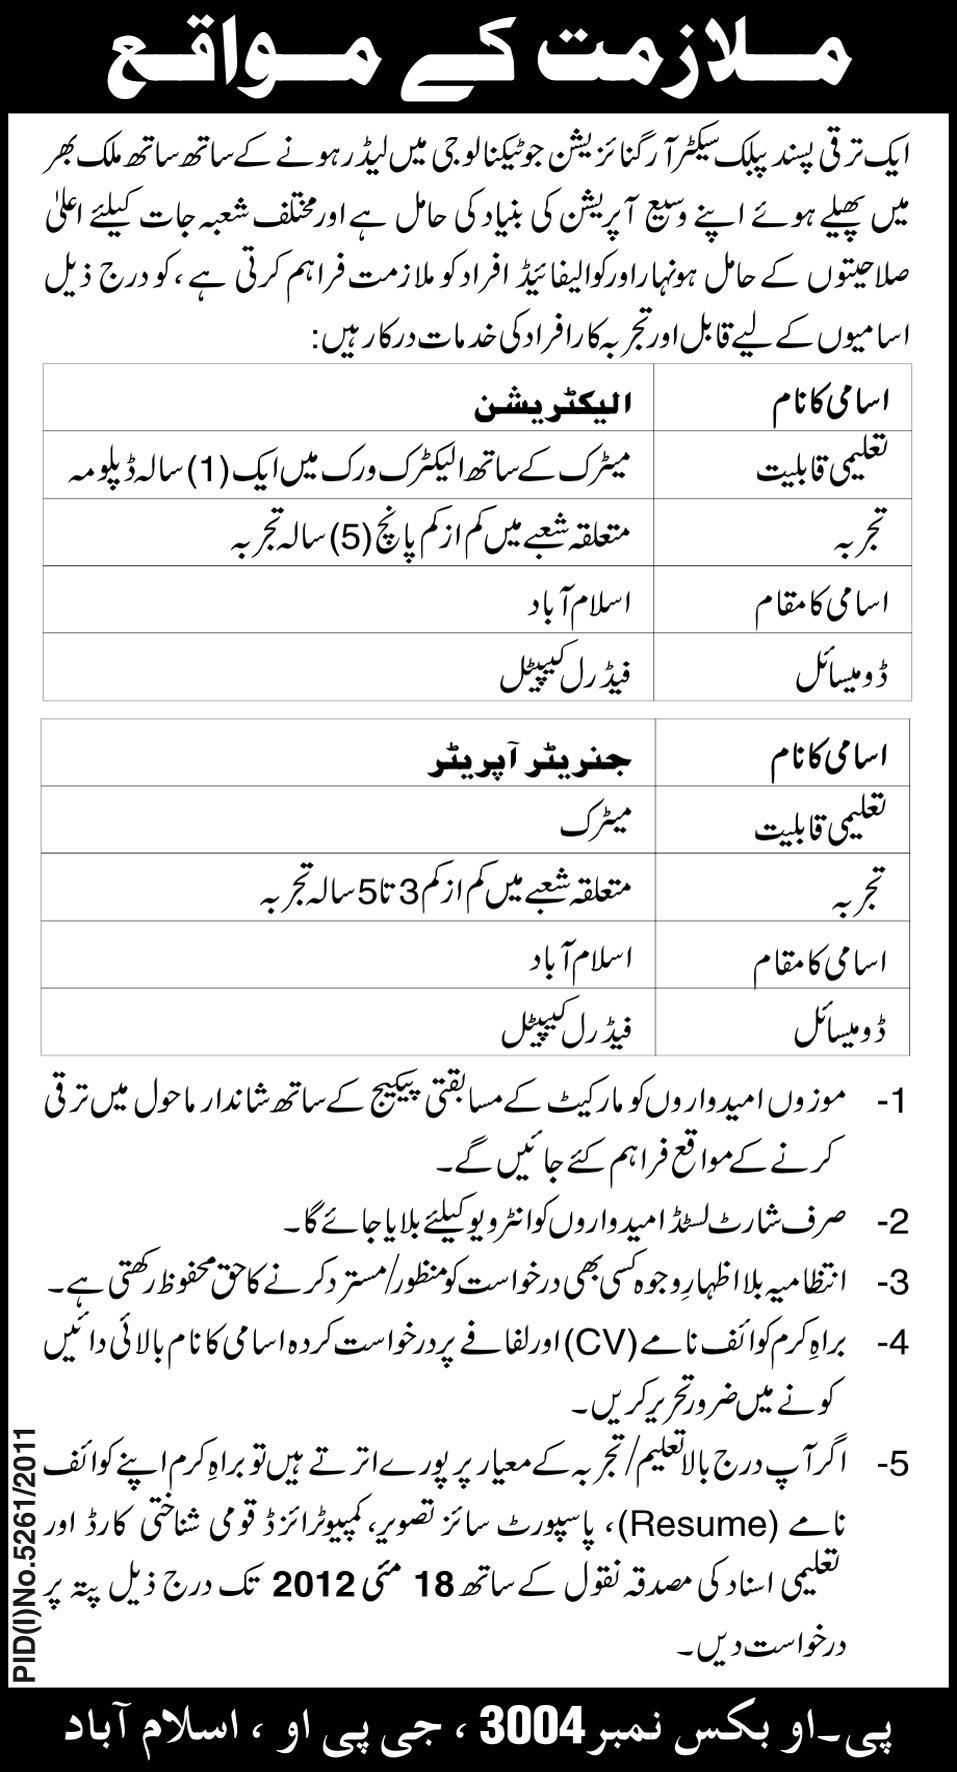 ملازمت کے مواقع
ایک ترقی پسند پبلک سیکٹر آرگنائزیشن جو ٹیکنالوجی میں لیڈر ہونے کے ساتھ ساتھ ملک بھر
میں پھیلے ہوئے اپنے وسیع آپریشن کی بنیاد کی حامل ہے اور مختلف شعبہ جات کیلئے اعلیٰ
صلاحیتوں کے حامل ہونہار اور کوالیفائیڈ افراد کو ملازمت فراہم کرتی ہے، کو درج ذیل
اسامیوں کے لیے قابل اور تجربہ کار افراد کی خدمات درکار ہیں:
اسامی کا نام الیکٹریشن
تعلیمی قابلیت میٹرک کے ساتھ الیکٹرک ورک میں ایک (1) سالہ ڈپلومہ
تجربہ متعلقہ شعبے میں کم از کم پانچ (5) سالہ تجربہ
اسامی کا مقام اسلام آباد
ڈومیسائل فیڈرل کیپیٹل
اسامی کا نام جنریٹر آپریٹر
تعلیمی قابلیت میٹرک
تجربہ متعلقہ شعبے میں کم از کم 3 تا 5 سالہ تجربہ
اسامی کا مقام اسلام آباد
ڈومیسائل فیڈرل کیپیٹل
1- موزوں امیدواروں کو مارکیٹ کے مسابقتی پیکیج کے ساتھ شاندار ماحول میں ترقی
کرنے کے مواقع فراہم کئے جائیں گے۔
2- صرف شارٹ لسٹڈ امیدواروں کو انٹرویو کیلئے بلایا جائے گا۔
3- انتظامیہ بلا اظہارِ وجوہ کسی بھی درخواست کو منظور/مسترد کرنے کا حق محفوظ رکھتی ہے۔
4- براہِ کرم کوائف نامے (CV) اور لفافے پر درخواست کردہ اسامی کا نام بالائی دائیں
کونے میں ضرور تحریر کریں۔
5- اگر آپ درج بالا تعلیم/تجربہ کے معیار پر پورے اترتے ہیں تو براہِ کرم اپنے کوائف
نامے (Resume)، پاسپورٹ سائز تصویر، کمپیوٹرائزڈ قومی شناختی کارڈ اور
تعلیمی اسناد کی مصدقہ نقول کے ساتھ 18 مئی 2012 تک درج ذیل پتہ پر
درخواست دیں۔
PID(I)No.5261/2011
پی۔او بکس نمبر 3004، جی پی او، اسلام آباد